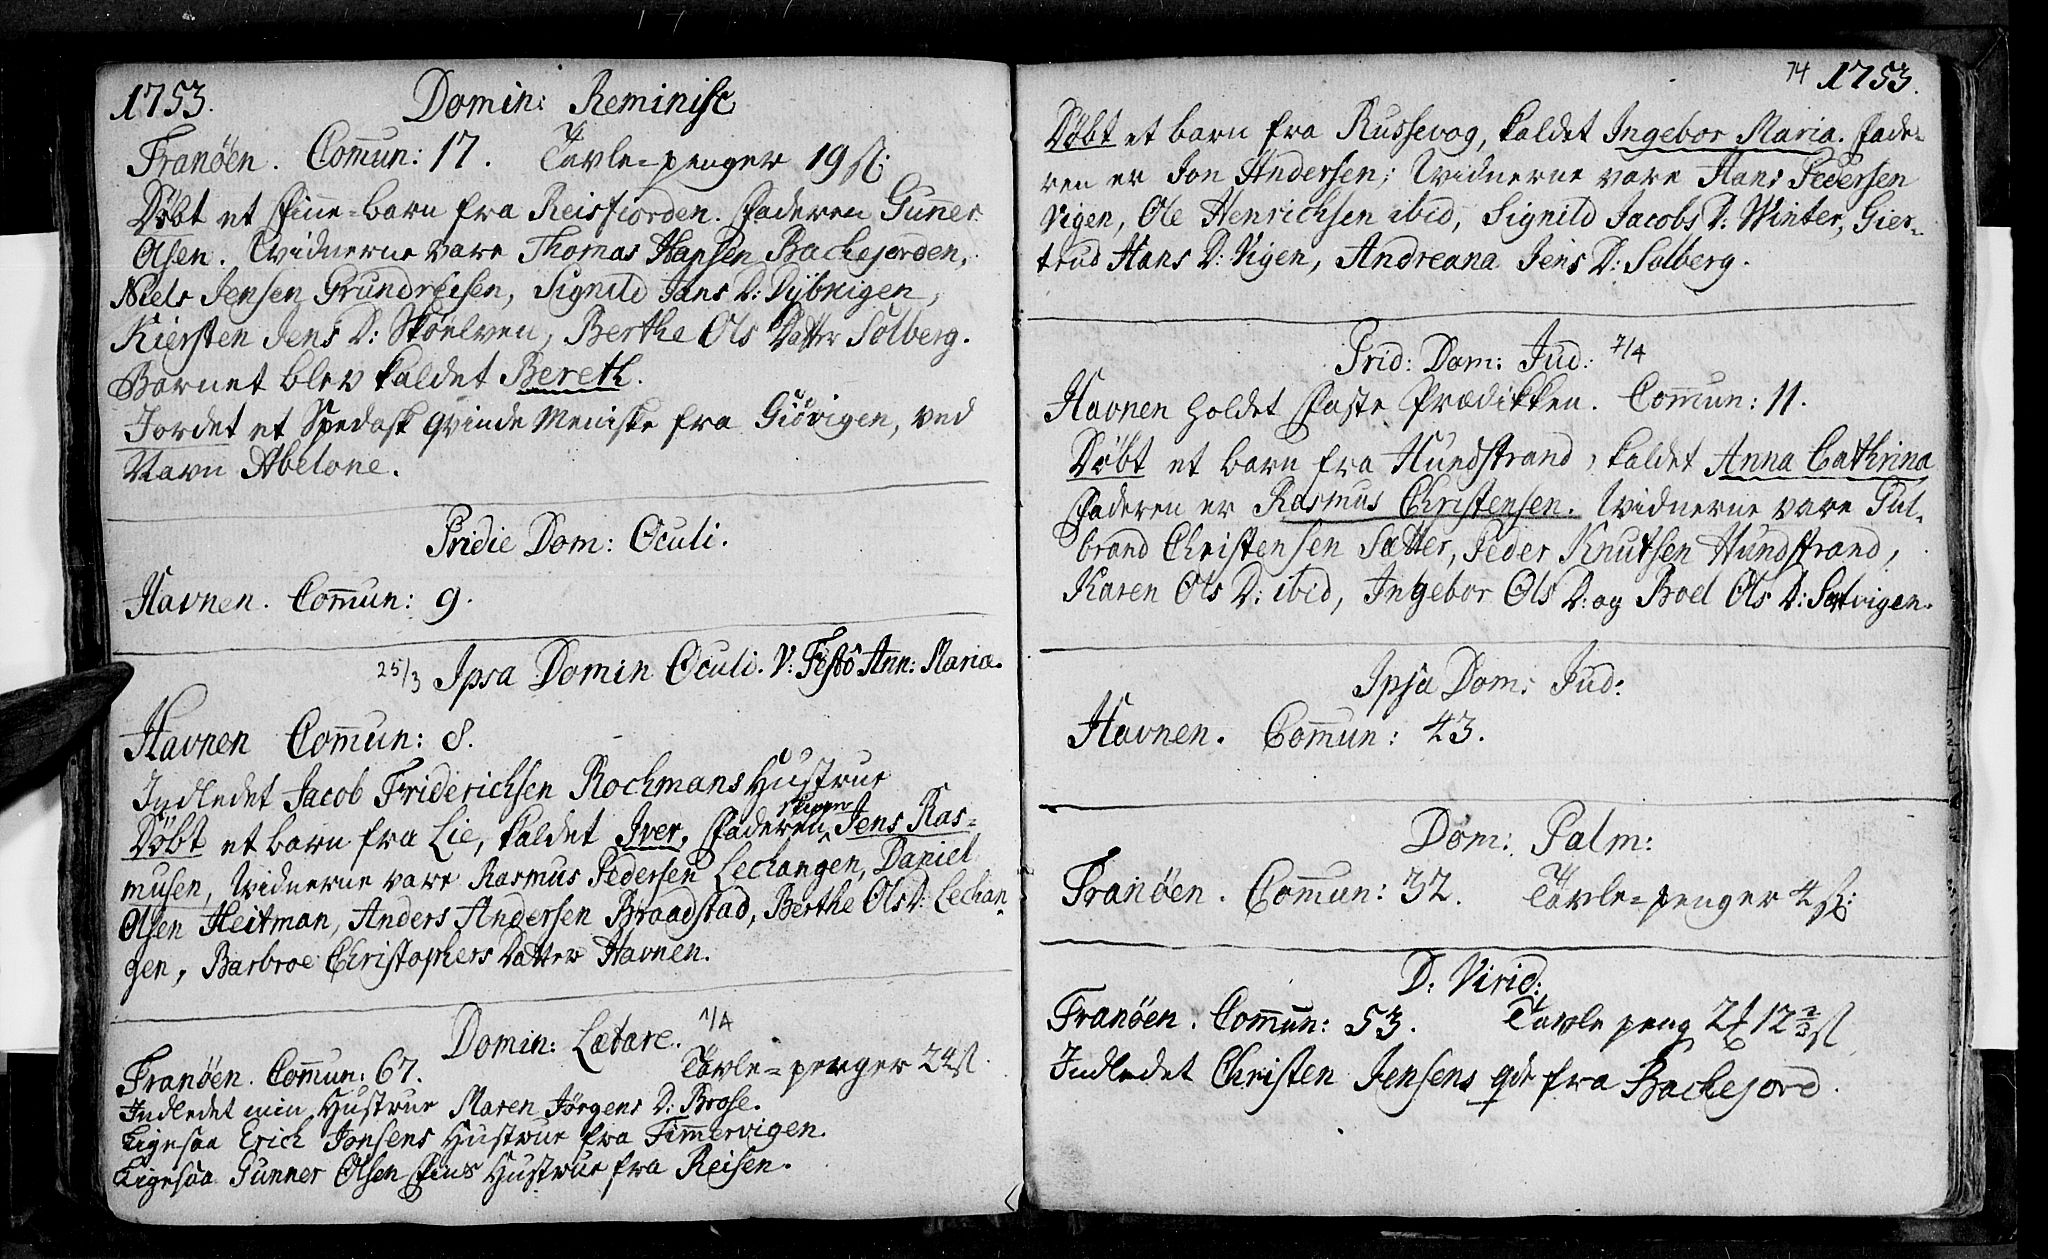 1753.
Domin: Reminisc
Tranöen. Com̄un: 17. Tavle=penger 19 sl:
Döbt et Finne-barn fra Reisfiorden. Faderen Gunner
Olsen. Widnerne vare Thomas Hansen Backejorden,
Niels Jensen Grundreisen, Signild Jans D: Dÿbvigen,
Kiersten Jens D: Sköelven, Berthe Ols Datter Solberg.
Barnet blev kaldet Bereth.
Jordet et Spedask qvinde Meniske fra Giövigen, ved
Navn Abelone.
Pridie Dom: Oculi.
Havnen. Com̄un: 9.
25/3 Ipsa Domin Oculi. V: Festo Ann: Mariæ.
Havnen Com̄un: 8.
Indledet Jacob Friderichsen Rochmans Hustrue
Döbt et barn fra Lie, kaldet Iver, Faderen Jens Ras=
musen, Widnerne vare Rasmus Pedersen Lechangen, Daniel
Olsen Heitman, Anders Andersen Braadstad, Berthe Ols D: Lechan
gen, Barbroe Christophers Datter Havnen.
Domin: Lætare. 1/4
Tranöen. Com̄un: 67. Tavle=penger 24 sl.
Indledet min Hustrue Maren Jörgens D: Brose.
Ligesaa Erich Jonsens Hustrue fra Tim̄ervigen.
Ligesaa Gunner Olsen Fins Hustrue fra Reisen.
74 1753.
Döbt et barn fra Russevog, kaldet Ingebor Maria. Fade-
ren er Jon Andersen; Widnerne vare Hans Pedersen
Vigen, Ole Henrichsen ibid, Signild Jacobs D: Winter, Gier-
trud Hans D: Vigen, Andreana Jens D: Solberg.
Prid: Dom: Jud: 7/4
Havnen holdet Faste Prædikken. Com̄un: 11.
Döbt et barn fra Hundstrand, kaldet Anna Cathrina
Faderen er Rasmus Christensen. Widnerne vare Gul-
brand Christensen Sætter, Peder Knutsen Hundstrand,
Karen Ols D: ibid, Ingebor Ols D: og Boel Ols D: Sætvigen.
Ipsa Dom: Jud:
Havnen. Com̄un: 43.
Dom: Palm:
Tranöen. Com̄un: 32. Tavle=penger 4 sl:
D: Virid:
Tranöen. Com̄un: 53. Tavle peng 2 12 2/3 sl
Indledet Christen Jensens qde fra Backejord.